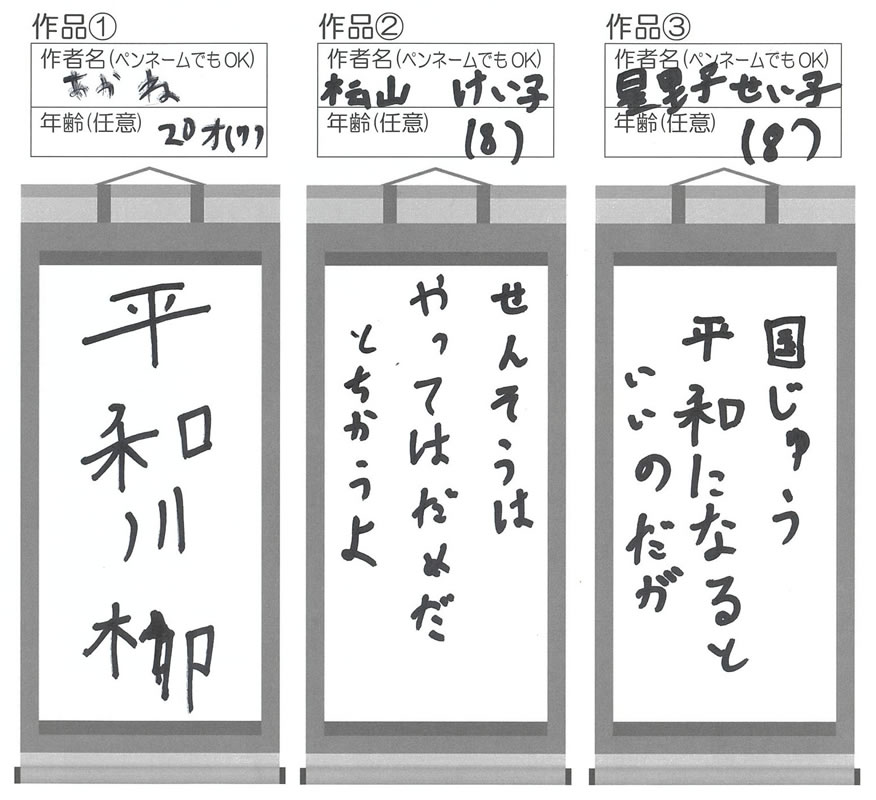 作品①
作者名(ペンネームでもOK)
あかね
年齢(任意)
20才(ワ)
平和川柳
作品②
作者名(ペンネームでもOK)
松山 けい子
年齢(任意)
(8)
せんそうは
やってはだめだ
とちかうよ
作品③
作者名(ペンネームでもOK)
星里子 せい子
年齢(任意)
(8才)
国じゅう
平和になると
いいのだが